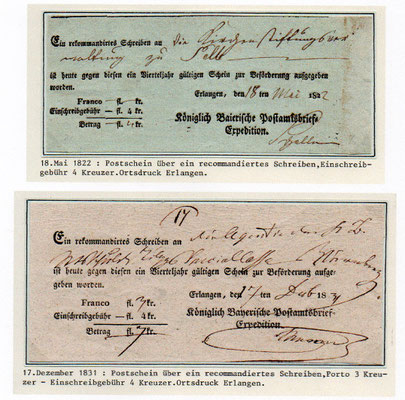 Ein rekommandirtes Schreiben an die Kirchenstiftungsver
waltung zu Selb
ist heute gegen diesen ein Vierteljahr gültigen Schein zur Beförderung aufgegeben
worden.
Erlangen, den 18 ten Mai 1822
Franco — fl. — kr.
Einschreibgebühr — fl. 4 kr.
Betrag — fl. 4 kr.
Königlich Baierische Postamtsbrief-
Expedition.
18.Mai 1822 : Postschein über ein recommandiertes Schreiben,Einschreib-
gebühr 4 Kreuzer.Ortsdruck Erlangen.
17
Ein rekommandirtes Schreiben an
Nürnberg
ist heute gegen diesen ein Vierteljahr gültigen Schein zur Beförderung aufge-
geben worden.
Erlangen, den 17 ten Dez 1831
Franco — fl. 3 kr.
Einschreibgebühr — fl. 4 kr.
Betrag — fl. 7 kr.
Königlich Bayerische Postamtsbrief-
Expedition.
17.Dezember 1831 : Postschein über ein recommandiertes Schreiben,Porto 3 Kreu-
zer - Einschreibgebühr 4 Kreuzer.Ortsdruck Erlangen.